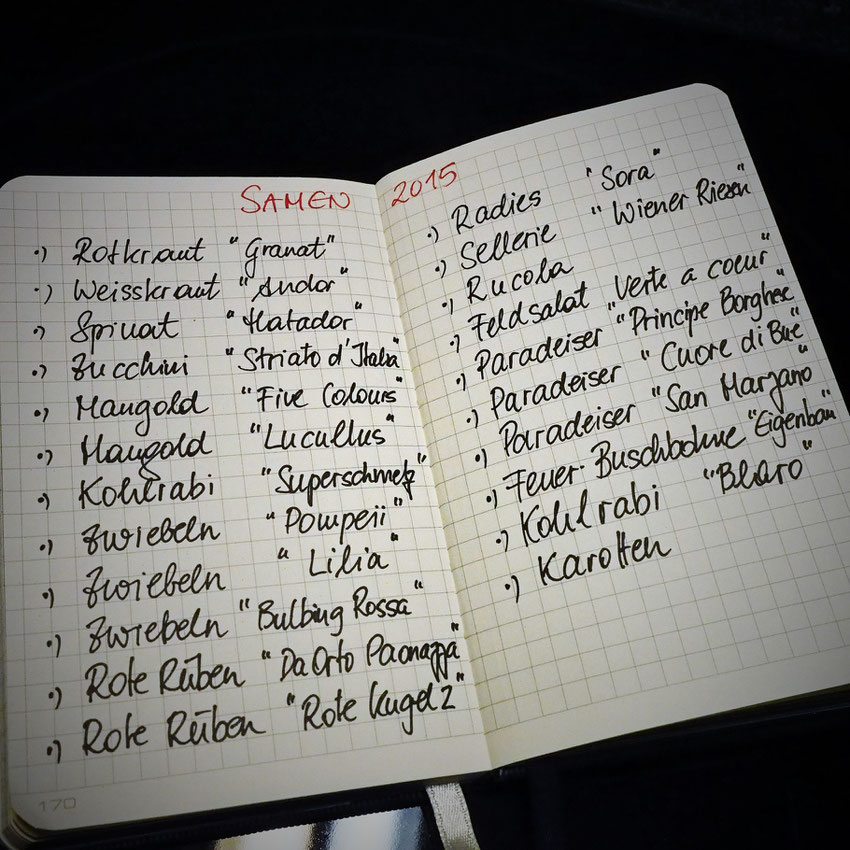 SAMEN 2015
·) Rotkraut "Granat"
·) Weisskraut "Andor"
·) Spinat "Matador"
·) Zucchini "Striato d'Italia"
·) Mangold "Five Colours"
·) Mangold "Lucullus"
·) Kohlrabi "Superschmelz"
·) Zwiebeln "Pompeii"
·) Zwiebeln "Lilia"
·) Zwiebeln "Bulbing Rossa"
·) Rote Rüben "Da Orto Paonazza"
·) Rote Rüben "Rote Kugel 2"
170
·) Radies "Sora"
·) Sellerie "Wiener Riesen"
·) Rucola
·) Feldsalat "Verte a coeur"
·) Paradeiser "Principe Borghese"
·) Paradeiser "Cuore di Bue"
·) Paradeiser "San Marzano"
·) Feuer-Buschbohne "Eigenbau"
·) Kohlrabi "Blaro"
·) Karotten